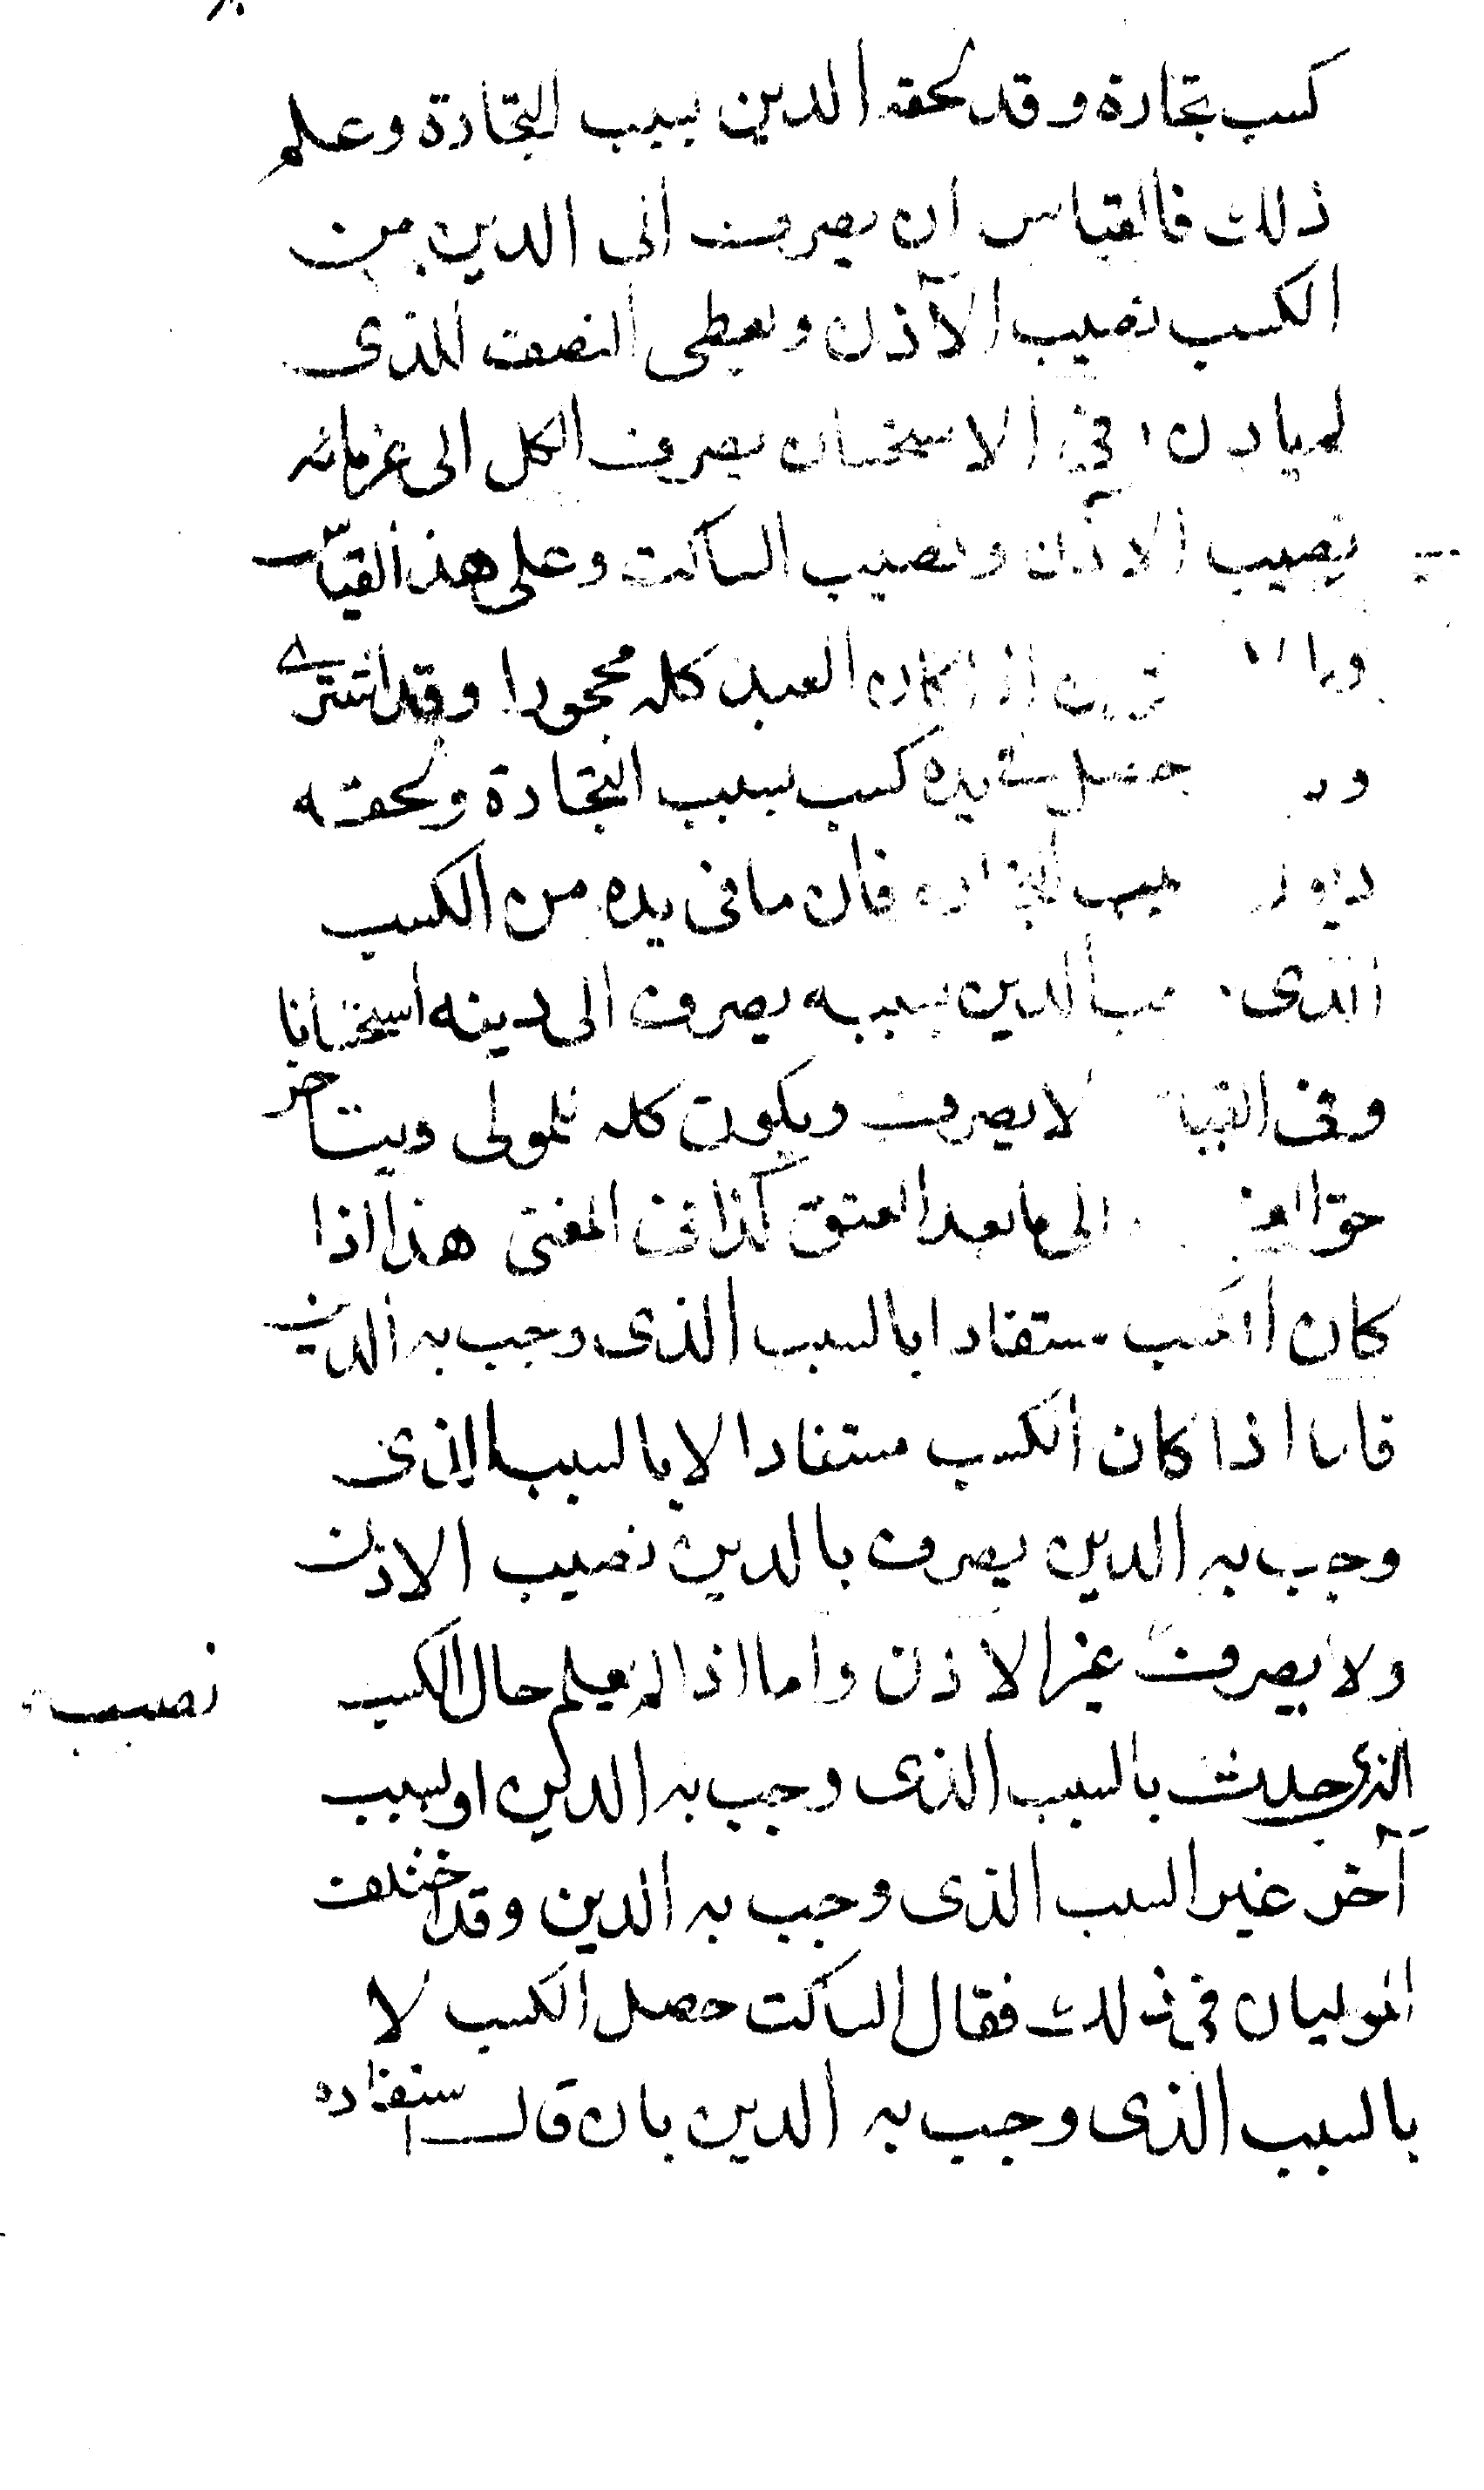 كسب تجارة وقد لحقه الدين بسبب التجارة وعلم
ذلك فالقياس ان يصرف الى الدين من
الكسب نصيب الآذن ويعطى النصف للذى
لم يأذن وفي الاستحسان يصرف الكل الى غرمائه
نصيب الآذن ونصيب الساكت وعلى هذا القياس
اذا كان العبد كله محجورا وقد اشترى
حصل في يده كسب بسبب التجارة ولحقته
ديون بسبب التجارة فان ما فى يده من الكسب
الذى الدين بسببه يصرف الى دينه استحسانا
وفى القياس لا يصرف ويكون كله للمولى ويتاخر
حق الى ما بعد العتق كذا فى المغنى هذا اذا
كان الكسب مستفادا بالسبب الذى وجب به الدين
فاما اذا كان الكسب مستفادا لا بالسبب الذى
وجب به الدين يصرف بالدين نصيب الاذن
ولا يصرف غير الاذن واما اذا لم يعلم حال الكسب
نصيب
الذى حدث بالسبب الذى وجب به الدين او بسبب
آخر غير السبب الذى وجب به الدين وقد اختلف
الموليان في ذلك فقال الساكت حصل الكسب لا
بالسبب الذى وجب به الدين بان قال استفاده